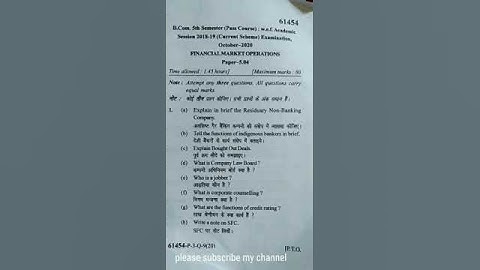 61454
B.Com. 5th Semester (Pass Course) ; w.e.f. Academic
Session 2018-19 (Current Scheme) Examination,
October-2020
FINANCIAL MARKET OPERATIONS
Paper-5.04
Time allowed : 1.45 hours] [Maximum marks : 80
Note : Attempt any three questions. All questions carry
equal marks.
नोट : कोई तीन प्रश्न कीजिए। सभी प्रश्नों के अंक समान हैं।
1. (a) Explain in brief the Residuary Non-Banking
Company.
(b) Tell the functions of indigenous bankers in brief.
देशी बैंकरों के कार्य संक्षेप में बताइये।
(c) Explain Bought Out Deals.
(d) What is Company Law Board ?
(e) Who is a jobber ?
(f) What is corporate counselling ?
(g) What are the functions of credit rating ?
(h) Write a note on SFC.
SFC पर नोट लिखें।
61454-P-3-Q-9(20) [P.T.O.
please subscribe my channel